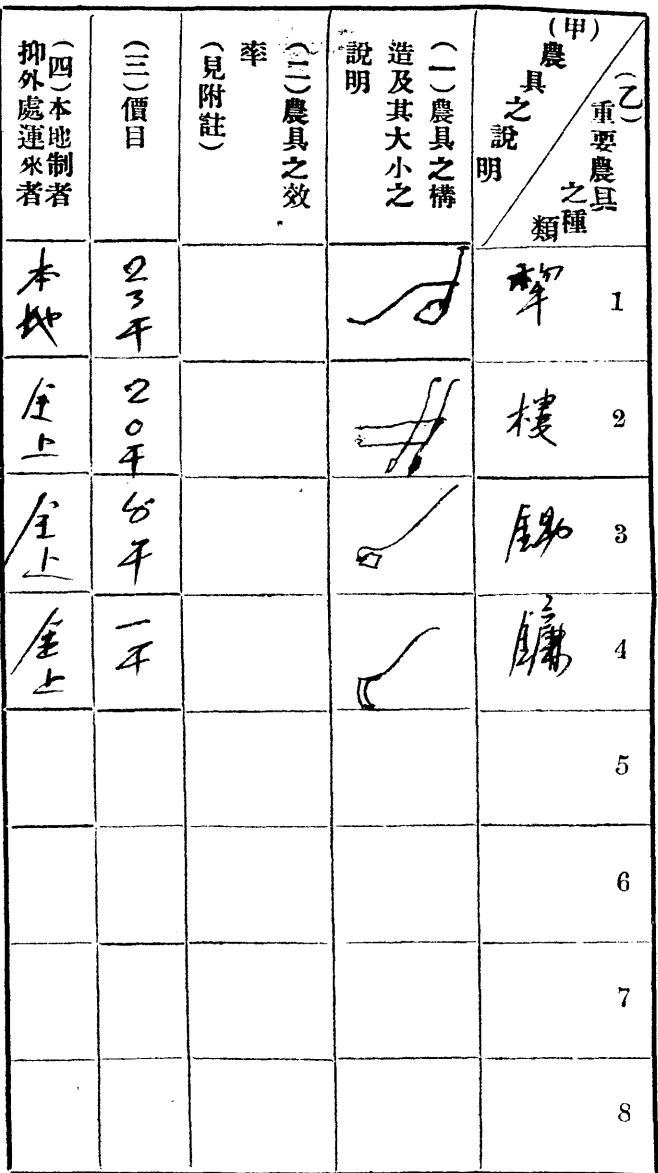 (甲)農具之說明
(乙)重要農具之種類
(一)農具之構
造及其大小之
說明
(二)農具之效
率
(見附註)
(三)價目
(四)本地制者
抑外處運來者
1
犂
23千
本地
2
樓
20千
仝上
3
鋤
千
仝上
4
鐮
一千
仝上
5
6
7
8